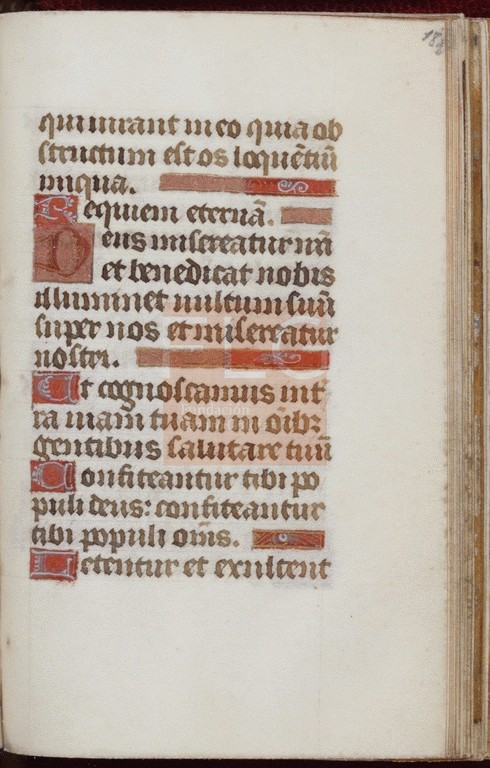 182
qui iurant in eo quia ob
structum est os loquētiū
iniqua.
Requiem eternā.
Deus misereatur nr̄i
et benedicat nobis
illuminet uultum suū
super nos et misereatur
nostri.
Ut cognoscamus in t̄
ra uiam tuam in oīb;
gentibus salutare tuū
Confiteantur tibi po
puli deus: confiteantur
tibi populi om̄s.
Letentur et exultent
fundación